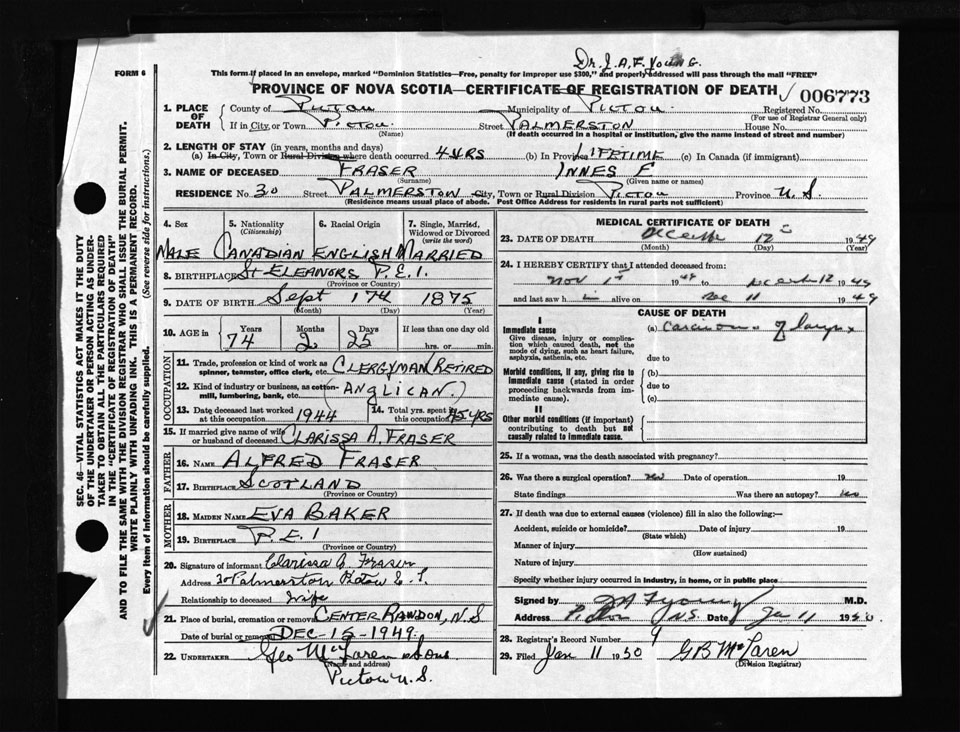 Dr. J. A. F. Young.
FORM 6
This form if placed in an envelope, marked "Dominion Statistics—Free, penalty for improper use $300," and properly addressed will pass through the mail "FREE"
PROVINCE OF NOVA SCOTIA—CERTIFICATE OF REGISTRATION OF DEATH ✓ 006773
1. PLACE OF DEATH County of Pictou Municipality of Pictou. Registered No.
(For use of Registrar General only)
If in City, or Town Pictou. Street Palmerston House No.
(Name) (If death occurred in a hospital or institution, give the name instead of street and number)
2. LENGTH OF STAY (in years, months and days)
(a) In City, Town or Rural Division where death occurred 4 yrs (b) In Province Lifetime (c) In Canada (if immigrant)
3. NAME OF DECEASED Fraser Innes F
(Surname) (Given name or names)
RESIDENCE No. 30 Street Palmerston City, Town or Rural Division Pictou Province N.S.
(Residence means usual place of abode. Post Office Address for residents in rural parts not sufficient)
4. Sex 5. Nationality (Citizenship) 6. Racial Origin 7. Single, Married, Widowed or Divorced (write the word)
Male Canadian English Married
8. BIRTHPLACE St Eleanors P.E.I.
(Province or Country)
9. DATE OF BIRTH Sept 17th 1875
(Month) (Day) (Year)
10. AGE in Years Months Days If less than one day old
74 2 25 hrs. or min.
OCCUPATION
11. Trade, profession or kind of work as spinner, teamster, office clerk, etc. Clergyman Retired
12. Kind of industry or business, as cotton mill, lumbering, bank, etc. (Anglican.)
13. Date deceased last worked at this occupation 1944 14. Total yrs. spent in this occupation 45 yrs
15. If married give name of wife or husband of deceased Clarissa A. Fraser
FATHER
16. NAME Alfred Fraser
17. BIRTHPLACE Scotland
(Province or Country)
MOTHER
18. MAIDEN NAME Eva Baker
19. BIRTHPLACE P.E.I
(Province or Country)
20. Signature of informant Clarissa A. Fraser
Address 30 Palmerston
Relationship to deceased Wife
21. Place of burial, cremation or removal Center Rawdon, N.S
Date of burial or removal Dec-15-1949.
22. UNDERTAKER Geo McLaren & Sons
(Name and address)
Pictou N.S.
MEDICAL CERTIFICATE OF DEATH
23. DATE OF DEATH December 12 1949
(Month) (Day) (Year)
24. I HEREBY CERTIFY that I attended deceased from:
Nov 1st 1949 to December 12 1949
and last saw him alive on Dec 11 1949
CAUSE OF DEATH
I
Immediate cause (a) Carcinoma of larynx
Give disease, injury or complication which caused death, not the mode of dying, such as heart failure, asphyxia, asthenia, etc. due to
Morbid conditions, if any, giving rise to immediate cause (stated in order proceeding backwards from immediate cause). (b)
due to
(c)
II
Other morbid conditions (if important) contributing to death but not causally related to immediate cause.
25. If a woman, was the death associated with pregnancy?
26. Was there a surgical operation? no Date of operation 19
State findings Was there an autopsy? no
27. If death was due to external causes (violence) fill in also the following:—
Accident, suicide or homicide? Date of injury 19
(State which)
Manner of injury
(How sustained)
Nature of injury
Specify whether injury occurred in industry, in home, or in public place
Signed by J A F Young M.D.
Address Pictou N.S. Date Jan 11 1950
28. Registrar's Record Number 9
29. Filed Jan 11 1950 G B McLaren
(Division Registrar)
SEC. 46—VITAL STATISTICS ACT MAKES IT THE DUTY
OF THE UNDERTAKER OR PERSON ACTING AS UNDER-
TAKER TO OBTAIN ALL THE PARTICULARS REQUIRED
IN THE "CERTIFICATE OF REGISTRATION OF DEATH"
AND TO FILE THE SAME WITH THE DIVISION REGISTRAR WHO SHALL ISSUE THE BURIAL PERMIT.
WRITE PLAINLY WITH UNFADING INK. THIS IS A PERMANENT RECORD.
Every item of information should be carefully supplied. (See reverse side for instructions.)